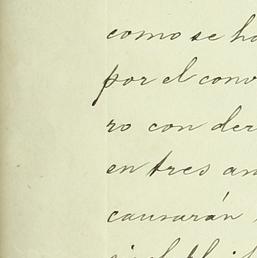 como se ha
por el conv
ro con der
en tres an
causarán